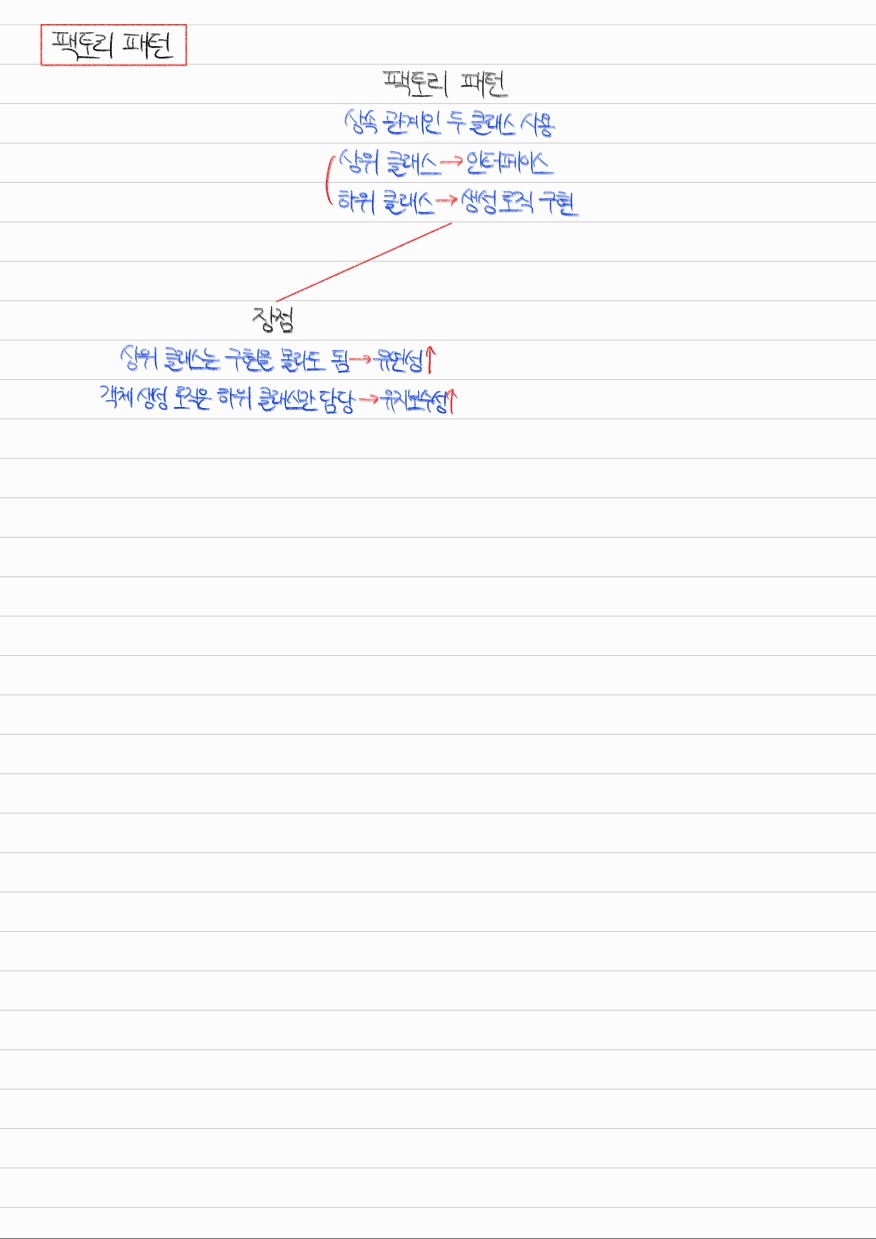 팩토리 패턴
팩토리 패턴
상속 관계인 두 클래스 사용
상위 클래스→인터페이스
하위 클래스→생성 로직 구현
장점
상위 클래스는 구현을 몰라도 됨→유연성↑
객체 생성 로직은 하위 클래스만 담당→유지보수성↑